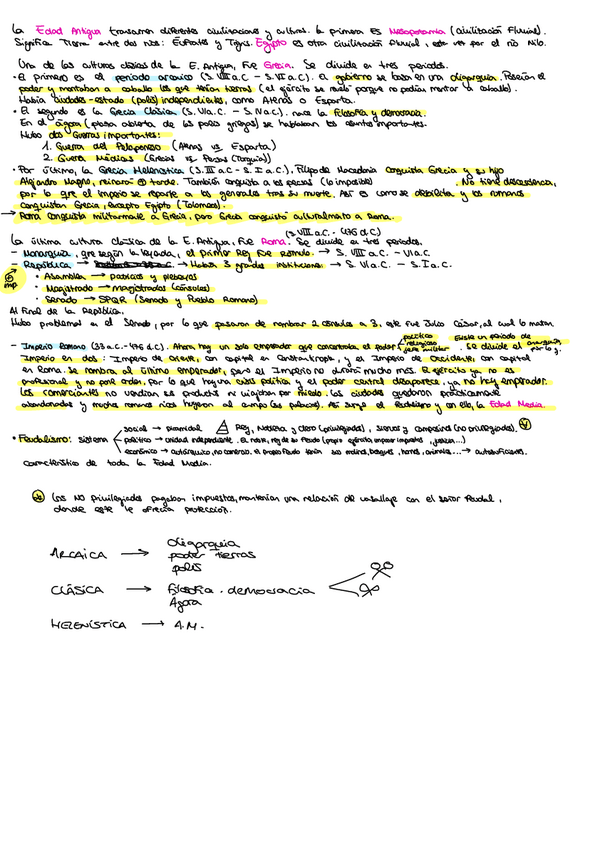 La Edad Antigua transcurren diferentes civilizaciones y culturas. La primera es Mesopotamia (civilización Fluvial).
Significa Tierra entre dos ríos: Eufrates y Tigris. Egipto es otra civilización Fluvial, esta vez por el río Nilo.
Una de las culturas clásicas de la E. Antigua, fue Grecia. Se divide en tres periodos.
• El primero es el periodo arcaico (S. VIII a.C - S. VI a.C). El gobierno se basa en una oligarquía. Poseían el
poder y montaban a caballo los que tenían tierras (el ejército se reveló porque no podían montar a caballo).
Había ciudades-estado (polis) independientes, como Atenas o Esparta.
• El segundo es la Grecia Clásica (S. V a.C. - S. IV a.C). nace la filosofía y democracia.
En el ágora (plaza abierta de las polis griegas) se hablaban los asuntos importantes.
Hubo dos Guerras importantes:
1. Guerra del Peloponeso (Atenas vs Esparta)
2. Guerra Médicas (Grecia vs Persas (Turquía))
• Por último, la Grecia Helenística (S. III a.C - S. I a.C.). Filipo de Macedonia conquista Grecia y su hijo
Alejandro Magno, reinará + tarde. También conquista a los persas (lo imposible) . No tiene descendencia,
por lo que el imperio se reparte a los generales tras su muerte. Así es como se debilita y los romanos
conquistan Grecia, excepto Egipto (Tolomeos).
→ Roma conquista militarmente a Grecia, pero Grecia conquistó culturalmente a Roma.
(S VIII a.C. - 476 d.C)
La última cultura clásica de la E. Antigua, fue Roma. Se divide en tres periodos.
- Monarquía, que según la leyenda, el primer Rey fue Rómulo. → S. VIII a.C. - VI a.C.
- República → Había 3 grandes instituciones → S. VI a.C. - S. I a.C.
imp
• Asamblea → patricios y plebeyos
• Magistrado → magistrados (cónsules)
• Senado → SPQR (Senado y Pueblo Romano)
Al final de la República.
Hubo problemas en el Senado, por lo que pasaron de nombrar 2 cónsules a 3, este fue Julio César, al cual lo matan
- Imperio Romano (33 a.c.-476 d.C). Ahora hay un solo emperador que concentraba el poder político religioso jefe militar. Existe un periodo de anarquía por lo q. Se divide el
Imperio en dos: Imperio de Oriente, con capital en Constantinopla, y el Imperio de Occidente, con capital
en Roma. Se nombra al último emperador, pero el Imperio no durará mucho más. El ejército ya no es
profesional y no pone orden, por lo que hay una crisis política y el poder central desaparece, ya no hay emperador.
Los comerciantes no vendían sus productos ni viajaban por miedo. Las ciudades quedaron prácticamente
abandonadas y muchos romanos ricos huyeron al campo (sus palacios). Así surge el feudalismo y con ello, la Edad Media.
• Feudalismo: sistema
social → piramidal Rey, Nobleza y clero (privilegiados), siervos y campesinos (no privilegiados).
político → unidad independiente. El noble, rey de su feudo (propio ejército, imponer impuestos, justicia...)
económico → autárquico, no comercio. el propio feudo tenía sus molinos, bosques, hornos, animales... → autosuficientes.
característico de toda la Edad Media.
Los NO privilegiados pagaban impuestos, mantenían una relación de vasallaje con el señor feudal,
donde este le ofrecía protección.
ARCAICA → oligarquía
poder tierras
polis
CLÁSICA → filosofía . democracia
Agora
HELENÍSTICA → A.M.